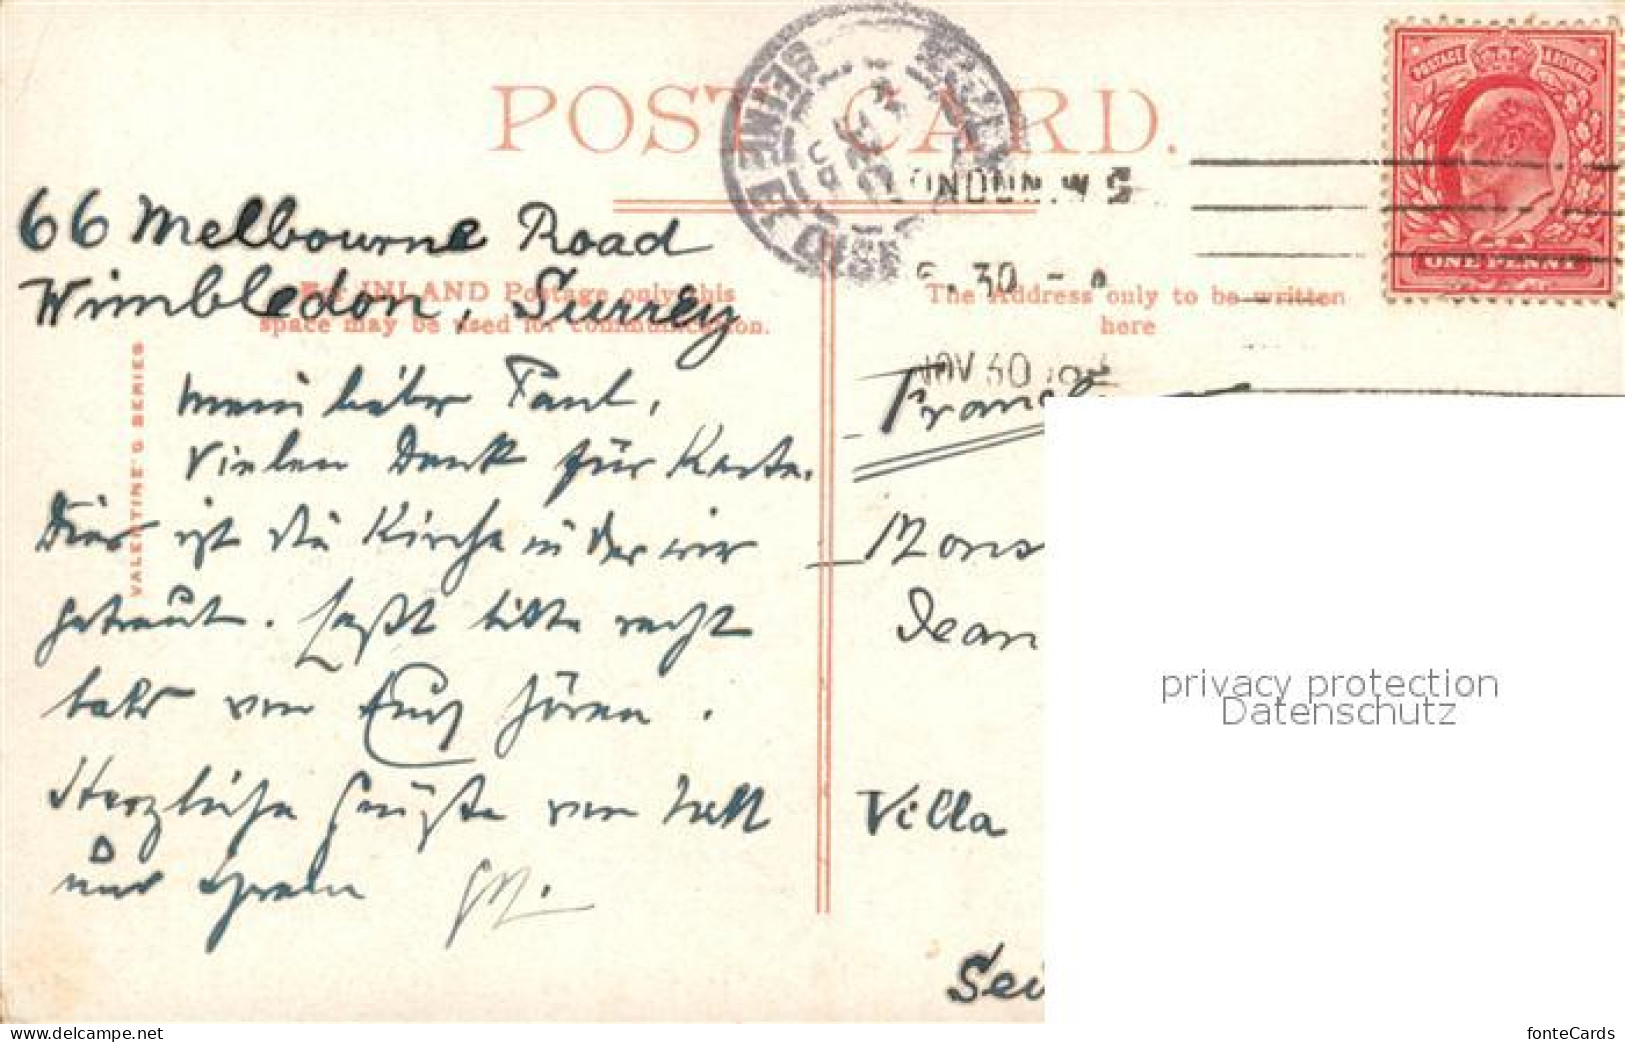 POST CARD.
POSTAGE & REVENUE
ONE PENNY
LONDON. W
30
NOV 30
SEINE ET OISE
66 Melbourne Road
Wimbledon, Surrey
For INLAND Postage only this
space may be used for communication.
The Address only to be written
here
VALENTINE'S SERIES
Mein lieber Paul,
Vielen Dank für Karte.
Dies ist die Kirche in der wir
getraut. Laßt bitte recht
bald von Euch hören.
Herzliche Grüße von
und
Mons
Jean
Villa
privacy protection
Datenschutz
www.delcampe.net
fonteCards